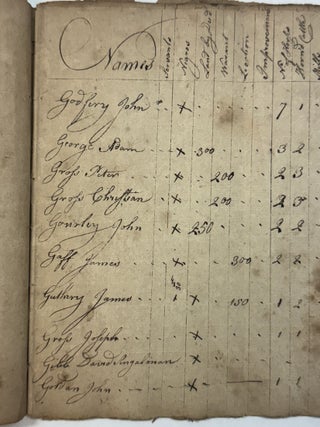 Names Servants Land by Deed Warrant Location Improvement No of Horses Horned Cattle Mills
Godfrey John x 7 1
George Adam x 300 3 2
Gross Peter x 200 2 3
Gross Christian x 200 2 3
Gourley John x 250 2 2
Gaff James x 300 2 2
Guthary James x 150 1 2
Gross Joseph x
Gibb David Singleman x
Gordan John x 1 1